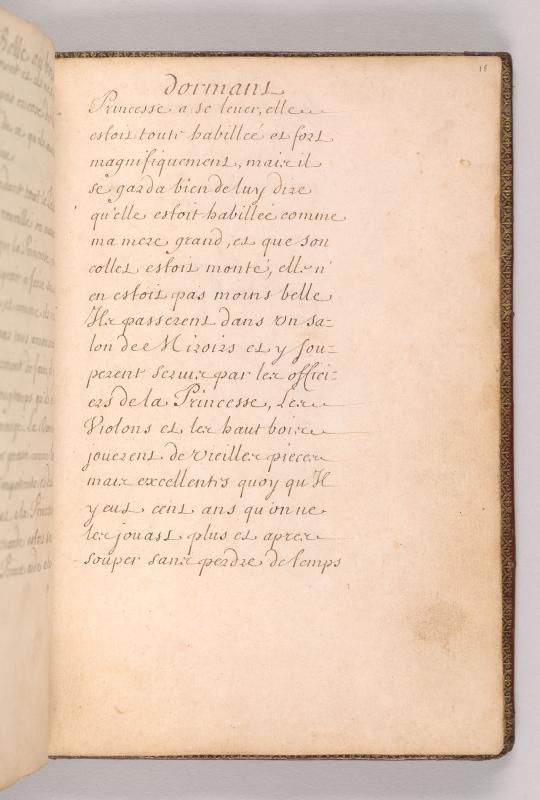 18
dormant
Princesse a se lever, elle
estoit toute habilleé et fort
magnifiquement, mais il
se garda bien de luy dire
qu'elle estoit habilleé comme
ma mere grand, et que son
collet estoit monté, elle n'
en estoit pas moins belle
Ils passerent dans un sa=
lon de Miroirs et y sou=
perent servis par les offici=
ers de la Princesse, Les
Violons et les hautbois
jouerent de vieilles pieces
mais excellentes quoy qu'Il
y eut cent ans qu'on ne
les jouast plus et apres
souper sans perdre de temps